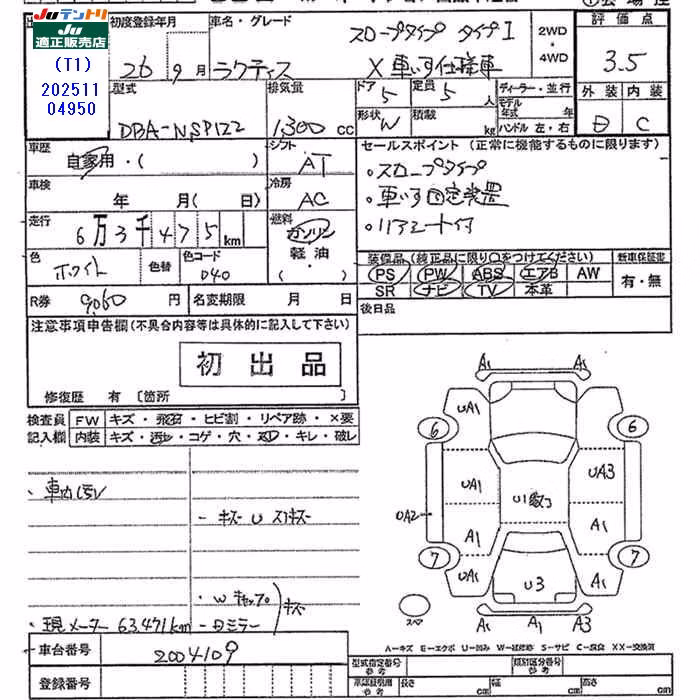 JU テントリ JU
適正販売店
(T1)
202511
04950
初度登録年月
車名・グレード
評価点
26年 9月
ラクティス
スロープタイプ タイプI
X 車いす仕様車
2WD・4WD
3.5
型式
排気量
ドア 5
定員 5人
ディーラー・並行
モデル年式 年
ハンドル 左・右
外装 内装
DBA-NSP122
1,300 cc
形状 W
積載 kg
C
車歴
自家用・( )
シフト AT
セールスポイント (正常に機能するものに限ります)
・スロープタイプ
・車いす固定装置
・リアシート付
車検
年 月( 日)
冷房 AC
走行
6万3千475km
燃料
ガソリン
軽油
・( )
色 ホワイト
色替
色コード 040
装備品(純正品に限り○をつけてください)
新車保証書
PS PW ABS エアB AW
SR ナビ TV 本革
有・無
R券 9,060円
名変期限 月 日
後日品
注意事項申告欄(不具合内容等は具体的に記入して下さい)
初出品
修復歴 有〔箇所 〕
検査員 FW キズ・飛石・ヒビ割・リペア跡・×要
記入欄 内装 キズ・汚レ・コゲ・穴・スレ・キレ・破レ
・車内汚レ
ーキズ U スリキズ
・Wキャップ
キズ
・現メーター 63,471km
ー日ミラー
A1 A1
UA1
6 6
UA1 UA3
U1数コ
UA2
A1 A1
7 7
UA1 U3 A1
スペア
A1 A1 A3
A－キズ E－エクボ U－凹み W－補修跡 S－サビ C－腐食 XX－交換済
車台番号
2004109
登録番号
型式指定番号
類別区分番号
長さ cm 幅 cm 高さ cm